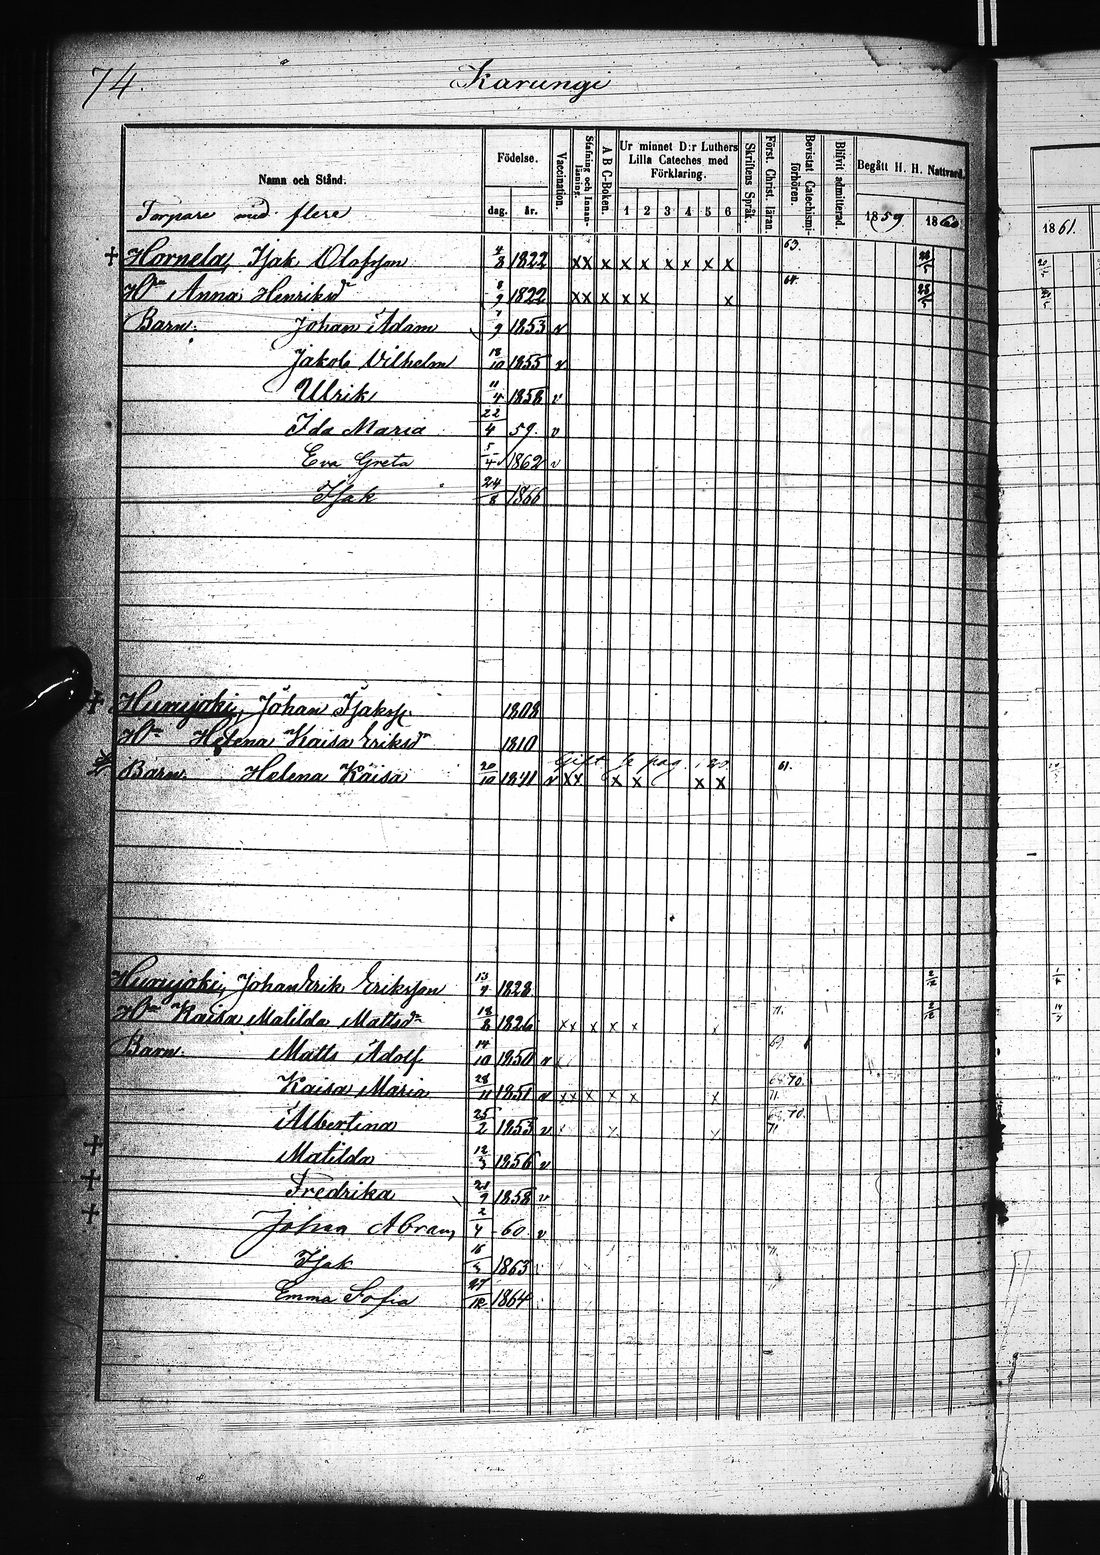 74. Karungi
Namn och Stånd. Födelse. Vaccination. Stafning och Innanläsning. A B C-Boken. Ur minnet D:r Luthers Lilla Cateches med Förklaring. Skriftens Språk. Först. Christ. läran Bevistat Catechismiförhören. Blifvit admitterad. Begått H. H. Nattvard.
dag. år. 1 2 3 4 5 6 1859 1860 1861.
Torpare med flere
+ Hornela, Isak Olofsson 4/8 1822 x x x x x x x x x 63.
H:n Anna Henriksd:r 8/9 1822 x x x x x x 64.
Barn: Johan Adam 7/9 1853 v
Jakob Vilhelm 18/10 1855 v
Ulrik 11/4 1858 v
Ida Maria 22/4 59. v
Eva Greta 5/4 1862 v
Isak 24/8 1866
+ Johan Isakss. 1808
H:n Helena Kaisa Eriksd:r 1810
Gift
Barn: Helena Kaisa 20/10 1841 v x x x x x x 61.
Johan Erik Eriksson 13/7 1828 2/12
H:n Kaisa Matilda Mattsd:r 18/8 1826 x x x x x x 71. 2/12
Barn: Matts Adolf 14/10 1850 v
Kaisa Maria 28/11 1851 v x x x x x x 70. 71
Albertina 25/2 1853 v x x x 70. 71
+ Matilda 12/3 1856 v
+ Fredrika 21/9 1858 v
+ Johan Abram 2/4 60 v
Isak 1863
Emma Sofia 27/12 1864